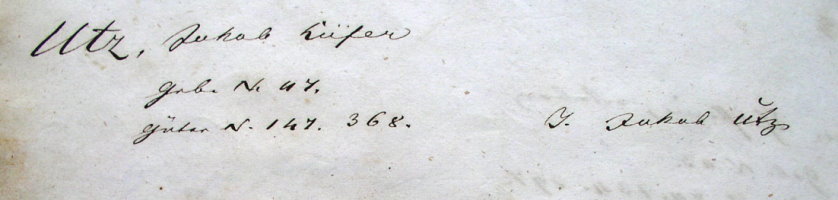 Utz, Jakob Küfer
Geb. N. 47.
Güter N. 147. 368.
T. Jakob Utz